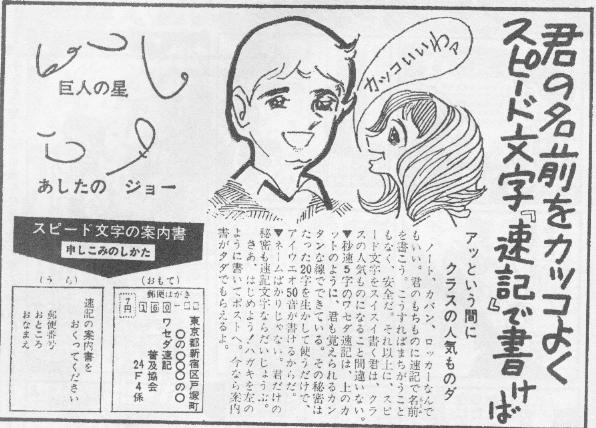 君の名前をカッコよく
スピード文字『速記で書けば』
カッコいいわァ
アッという間に
クラスの人気ものダ
ノート、カバン、ロッカーなんで
もいい。君のもちものに速記で名前
を書こう。こうすればまちがうこと
もなく、安全だ。それ以上に、スピ
ード文字をスイスイ書く君は、クラ
スの人気ものになること間違いない。
▼秒速5字のワセダ速記は、上のカ
ットのように、君も覚えられるカン
タンな線でできている。その秘密は
たった20字を生かして使うだけで、
アイウエオ50音が書けるからだ。
▼ネームばかりじゃない。君だけの
秘密も速記文字ならだいじょうぶ。
さあ、はじめよう!ハガキを左の
ように書いてポストへ。今なら案内
書がタダでもらえるよ。
巨人の星
あしたの ジョー
スピード文字の案内書
申しこみのしかた
(おもて)
郵便はがき
7円
160-□□
東京都新宿区戸塚町
ワセダ速記
普及協会
24F4係
(うら)
速記の案内書を
おくってください
郵便番号
おところ
おなまえ